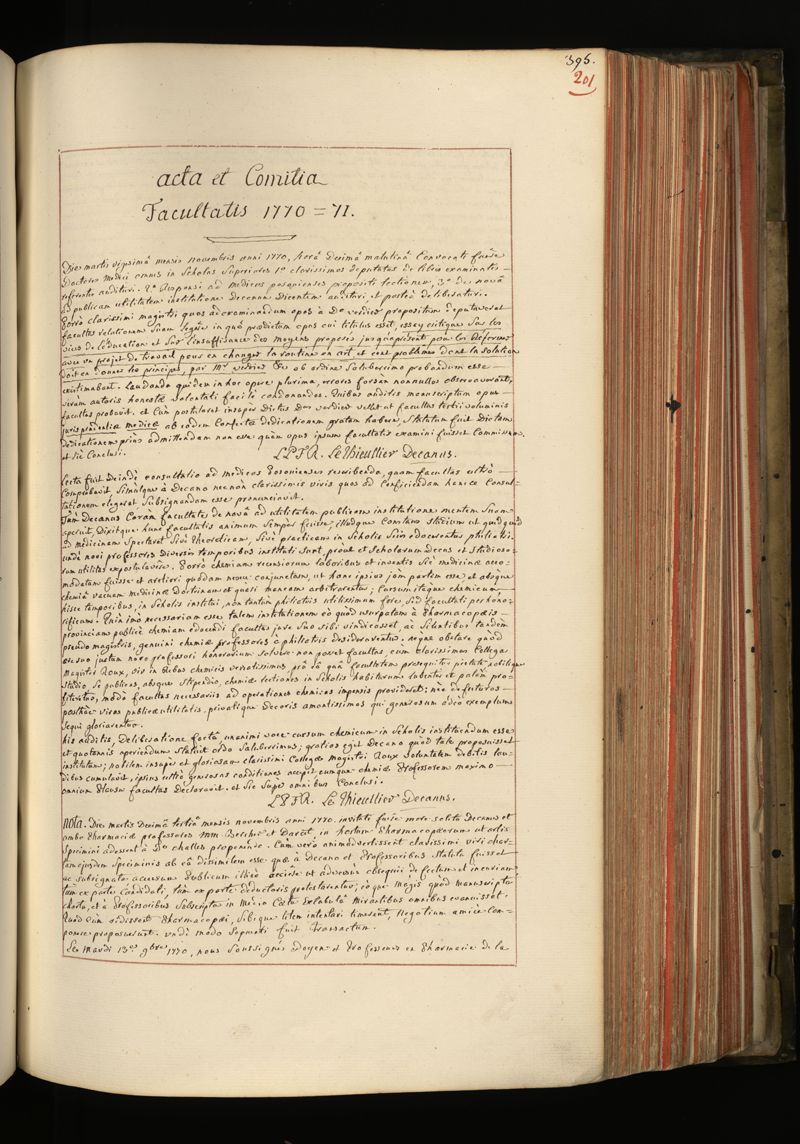 395.
201
acta et Comitia
Facultatis 1770 = 71.
Die martis vigesimâ mensis novembris anni 1770, horâ Decimâ matutinâ Convocati fuêre
Doctores Medici omnes in Scholas Superiores 1º clarissimos deputatos de libris examinatis
referentes audituri. 2º Responsi ad medicos posonienses propositi lectionem, 3º de novâ
ad publicam utilitatem institutione Decanum Dicentem audituri, et posteà deliberaturi.
Porrò clarissimi magistri quos ad examinandum opus à Dno verdier propositum deputaverat
facultas relationem suam legêre in quâ prædictum opus cui titulus esset, essay critique sur les
vices de l'éducation et sur l'insuffisance des moyens proposés jusqu'apresent pour les Réformer
avec un projet de travail pour en changer la routine en art et cent problêmes dont la solution
doit en donner les principes, par Mr verdier &c ob ordine saluberrimo probandum esse
existimabant. Laudanda quidem in hoc opere plurima, errores forsan nonnullos observaverant,
verùm autoris honestæ voluntati facilè condonandos. Quibus auditis manuscriptum opus
facultas probavit. et Cùm postularet insuper Dictus Dnus verdier vellet ut facultas tertii voluminis
jurisprudentiæ medicæ ab eodem Confectæ dedicationem gratam habere, statutum fuit Dictam
dedicationem priùs admittendam non esse quàm opus ipsum facultatis examini fuisset Commissum.
et sic Conclusi.
L P F R. Le Thieullier Decanus.
Lecta fuit Deindè consultatio ad medicos Posonienses rescribenda, quam facultas ultrò
Comprobavit simulque à Decano necnon clarissimis viris quos ad Conficiendam hancce Consul-
tationem elegerat subsignandam esse pronunciavit.
Tùm Decanus Coràm facultate de novâ ad utilitatem publicam institutione mentem suam
aperuit, Dixitque hunc facultatis animum semper fuisse, illudque Constans studium ut quidquid
ad medicinam spectaret sivè theoreticam, sivè practicam in Scholis suis edocerentur philiatri.
undè novi professores diversis temporibus instituti sunt, prout et scholarum decus et studioso-
rum utilitas expostulavêre. Porrò chemiam recensiorum laboribus et inventis sic medicinæ acco-
modatam fuisse et arctiori quodam nexu conjunctam, ut hanc ipsius jam partem esse et absque
chemiâ vacuam medicinæ Doctrinam et quasi mancam arbitrarentur; Cursum itaque chemicum
hisce temporibus, in Scholis institui, non tantùm philiatris utilissimum fore, sed facultati perhono-
rificum. Quin imò necessariam esse talem institutionem eò quòd usurpatam à Pharmacopæis
provinciam publicè chemiam edocendi facultas jure suo sibi vindicasset, ac silentibus tandem
pseudo magistris, genuini chemiæ professores à philiatris desiderarentur. neque obstare quòd
ære suo justum novo professori honorarium solvere non posset facultas, cum clarissimus Collega
magister Roux, vir in rebus chemicis versatissimus, præ eâ quâ facultatem prosequitur pietate publicique
studio se publicas, absque stipendio, chemiæ lectiones in scholis habiturum lubenter et palàm pro-
fiteretur, modò facultas necessariis ad operationes chemicas impensis provideret; nec defuturos
posthàc viros publicæ utilitatis, privatique decoris amantissimos qui generosum adeò exemplum
sequi gloriarentur.
his auditis, Deliberatione factâ unanimi voce cursum chemicum in scholis instituendum esse
et quotannis aperiendum statuit ordo saluberrimus; gratias egit Decano quòd tale proposuisset
institutum; nobilem insuper et gloriosam clarissimi Collegæ magistri Roux voluntatem debitis lau-
dibus cumulavit, ipsius ultrò generosas conditiones accepit, eumque chemiæ Professorem maximo
omnium plausu facultas Declaravit. et sic super omnibus Conclusi.
L P F R. Le Thieullier Decanus.
Nota. Die martis Decimâ tertiâ mensis novembris anni 1770. invitati fuêre more solito Decanus et
ambo Pharmaciæ professores MM. Bercher et Darcet, in hortum Pharmacopæorum ut artis
specimini adessent à Dno challes proponendo. Cùm verò animadvertissent clarissimi viri char-
tam ejusdem speciminis ab eâ dissimilem esse quæ à Decano et Professoribus statuta fuisset
ac subsignata
ex parte candidati, tùm ex parte ductoris protestarentur; eò que magis quòd manuscripta
charta, et à Professoribus subscripta
Quod cùm vidissent Pharmacopæi, sibique litem intentari timerent, negotium amicè com-
ponere proposuerunt. undè modo sequenti fuit transactum.
Ce mardi 13e 9bre 1770, nous soussignés doyen et Professeurs en Pharmacie de la